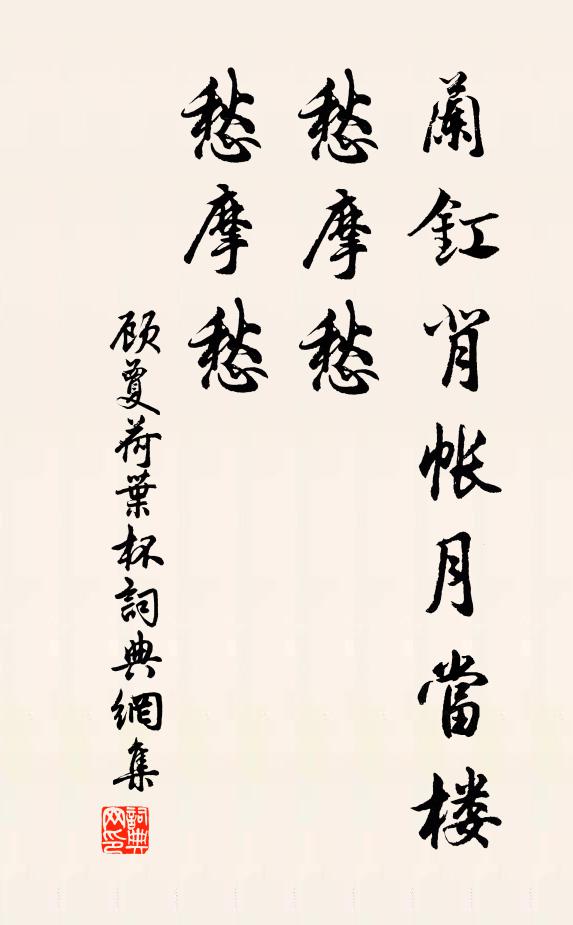 蘭釭背帳月當楼
愁摩愁
愁摩愁
顾夐荷葉杯詞典網集
詞典网印